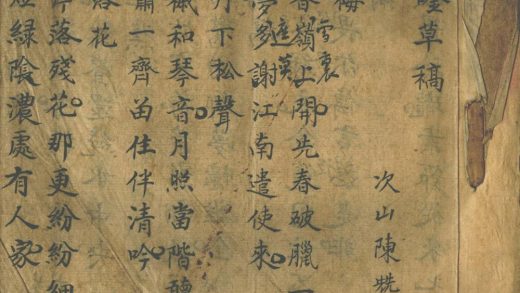 草稿
次山陳
梅
嶺上開先春破臘
雪裏
夢多謝江南遣使來
月下松聲
和琴音月照當階聽
一齊畄住伴清吟
落花
落殘花那更紛紛細
綠陰濃處有人家